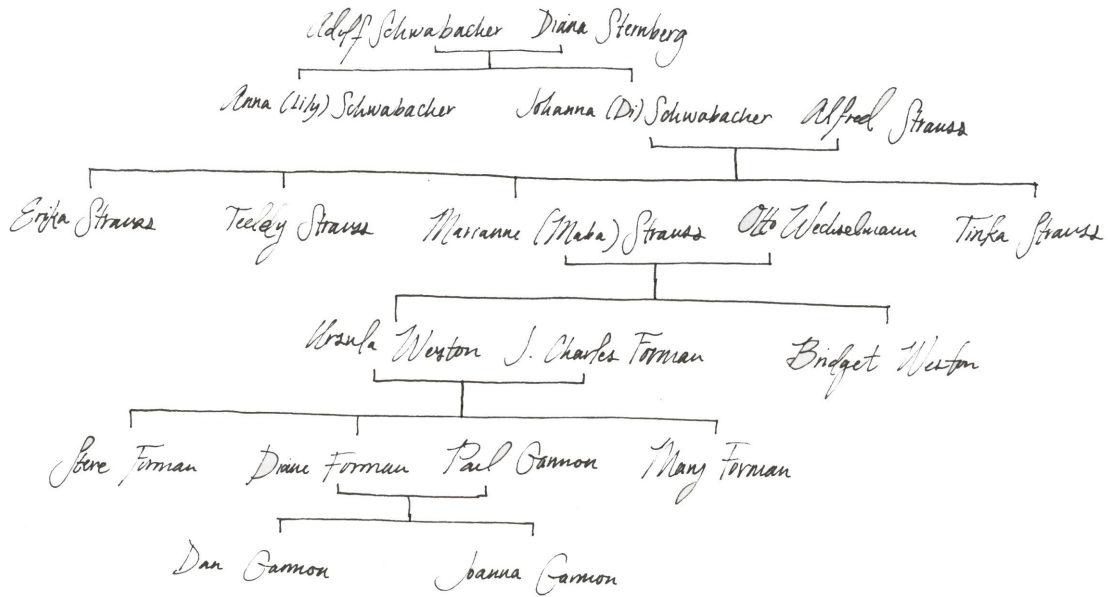 Adolf Schwabacher Diana Sternberg
Anna (Lily) Schwabacher Johanna (Di) Schwabacher Alfred Strauss
Erika Strauss Teddy Strauss Marianne (Maba) Strauss Otto Wechselmann Tinka Strauss
Ursula Weston J. Charles Forman Bridget Weston
Steve Forman Diane Forman Paul Gannon Mary Forman
Dan Gannon Joanna Gannon